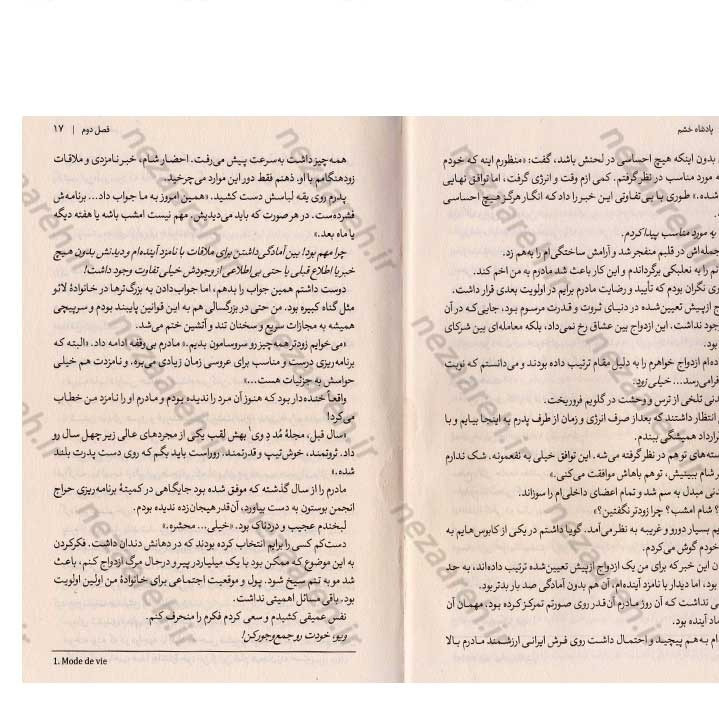 پادشاه خشم
بدون اینکه هیچ احساسی در لحنش باشد، گفت: «منظورم اینه که خودم
مورد مناسب در نظر گرفتم. کمی ازم وقت و انرژی گرفت، اما توافق نهایی
شده.» طوری با بی‌تفاوتی این خبر را داد که انگار هرگز هیچ احساسی
یه مورد مناسب پیدا کردم.
جمله‌اش در قلبم منفجر شد و آرامش ساختگی‌ام را به‌هم زد.
را به نعلبکی برگرداندم و این کار باعث شد مادرم به من اخم کند.
نگران بودم که تأیید و رضایت مادرم برایم در اولویت بعدی قرار داشت.
ازپیش تعیین‌شده در دنیای ثروت و قدرت مرسوم بود، جایی‌که در آن
نداشت. این ازدواج بین عشاق رخ نمی‌داد، بلکه معامله‌ای بین شرکای
بود.
ازدواج خواهرم را به دلیل مقام ترتیب داده بودند و می‌دانستم که نوبت
فرامی‌رسد... خیلی زود.
تلخی از ترس و وحشت در گلویم فروریخت.
انتظار داشتند که بعد از صرف انرژی و زمان از طرف پدرم به اینجا بیایم و با
قرارداد همیشگی ببندم.
تو هم در نظر گرفته می‌شه. این توافق خیلی به نفعمونه. شک ندارم
شام ببینیش، تو هم باهاش موافقت می‌کنی.»
مبدل به سم شد و تمام اعضای داخلی‌ام را سوزاند.
شام امشب؟ چرا زودتر نگفتین؟»
بسیار دورو و غریبه به نظر می‌آمد. گویا داشتم در یکی از کابوس‌هایم به
خودم گوش می‌کردم.
این خبر که برای من یک ازدواج ازپیش تعیین‌شده ترتیب داده‌اند، به حد
بود، اما دیدار با نامزد آینده‌ام، آن هم بدون آمادگی صد بار بدتر بود.
نداشت که آن روز مادرم آن‌قدر روی صورتم تمرکز کرده بود. مهمان آن
آینده بود.
به‌هم پیچید و احتمال داشت روی فرش ایرانی ارزشمند مادرم بالا
فصل دوم | ۱۷
همه‌چیز داشت به‌سرعت پیش می‌رفت. احضار شام، خبر نامزدی و ملاقات
زودهنگامم با او. ذهنم فقط دور این موارد می‌چرخید.
پدرم روی یقه لباسش دست کشید. «همین امروز به ما جواب داد... برنامه‌ش
فشرده‌ست. در هر صورت که باید می‌دیدیش. مهم نیست امشب باشه یا هفته دیگه
یا ماه بعد.»
چرا مهم بود! بین آمادگی داشتن برای ملاقات با نامزد آینده‌ام و دیدنش بدون هیچ
خبر یا اطلاع قبلی یا حتی بی‌اطلاعی از وجودش خیلی تفاوت وجود داشت!
دوست داشتم همین جواب را بدهم، اما جواب‌دادن به بزرگ‌ترها در خانوادهٔ لائو
مثل گناه کبیره بود. من حتی در بزرگسالی هم به این قوانین پایبند بودم و سرپیچی
همیشه به مجازات سریع و سخنان تند و آتشین ختم می‌شد.
«می‌خوایم زودتر همه‌چیز رو سروسامون بدیم.» مادرم بی‌وقفه ادامه داد. «البته که
برنامه‌ریزی درست و مناسب برای عروسی زمان زیادی می‌بره. و نامزدت هم خیلی
حواسش به جزئیات هست...»
واقعاً خنده‌دار بود که هنوز آن مرد را ندیده بودم و مادرم او را نامزد من خطاب
می‌کرد!
«سال قبل، مجلهٔ مُد دِ وی¹ بهش لقب یکی از مجردهای عالی زیر چهل سال رو
داد. ثروتمند، خوش‌تیپ و قدرتمند. روراست باید بگم که روی دست پدرت بلند
شده.»
مادرم را از سال گذشته که موفق شده بود جایگاهی در کمیتهٔ برنامه‌ریزی حراج
انجمن بوستون به دست بیاورد، آن‌قدر هیجان‌زده ندیده بودم.
لبخندم عجیب و دردناک بود. «خیلی... محشره.»
دست‌کم کسی را برایم انتخاب کرده بودند که در دهانش دندان داشت. فکرکردن
به این موضوع که ممکن بود با یک میلیاردر پیر و درحال مرگ ازدواج کنم، باعث
شد مو به تنم سیخ شود. پول و موقعیت اجتماعی برای خانوادهٔ من اولین اولویت
بود. باقی مسائل اهمیتی نداشت.
نفس عمیقی کشیدم و سعی کردم فکرم را منحرف کنم.
ویو، خودت رو جمع‌وجور کن!
1. Mode de vie
nezareh.ir